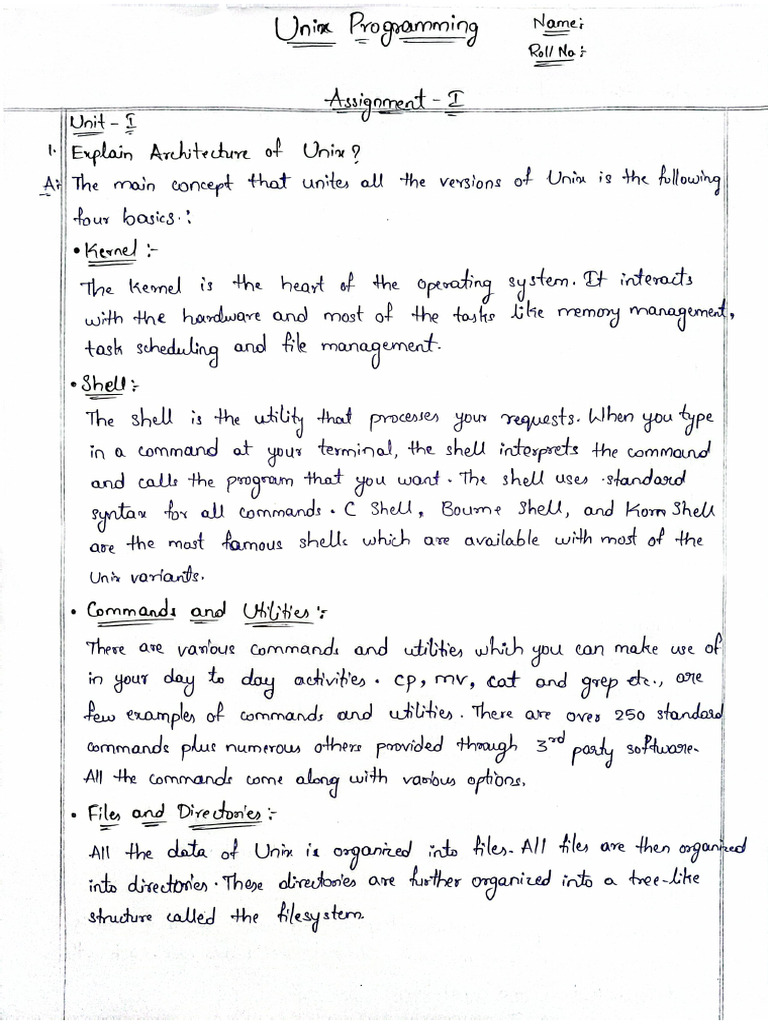 Unix Programming
Name:
Roll No:-
Assignment - I
Unit - I
1. Explain Architecture of Unix?
A:- The main concept that unites all the versions of Unix is the following
four basics.:
• Kernel :-
The Kernel is the heart of the operating system. It interacts
with the hardware and most of the tasks like memory management,
task scheduling and file management.
• Shell :-
The shell is the utility that processes your requests. When you type
in a command at your terminal, the shell interprets the command
and calls the program that you want. The shell uses standard
syntax for all commands. C Shell, Bourne Shell, and Korn Shell
are the most famous shells which are available with most of the
Unix variants.
• Commands and Utilities :-
There are various commands and utilities which you can make use of
in your day to day activities. cp, mv, cat and grep etc., are
few examples of commands and utilities. There are over 250 standard
commands plus numerous others provided through 3rd party software.
All the commands come along with various options.
• Files and Directories :-
All the data of Unix is organized into files. All files are then organized
into directories. These directories are further organized into a tree-like
structure called the filesystem.